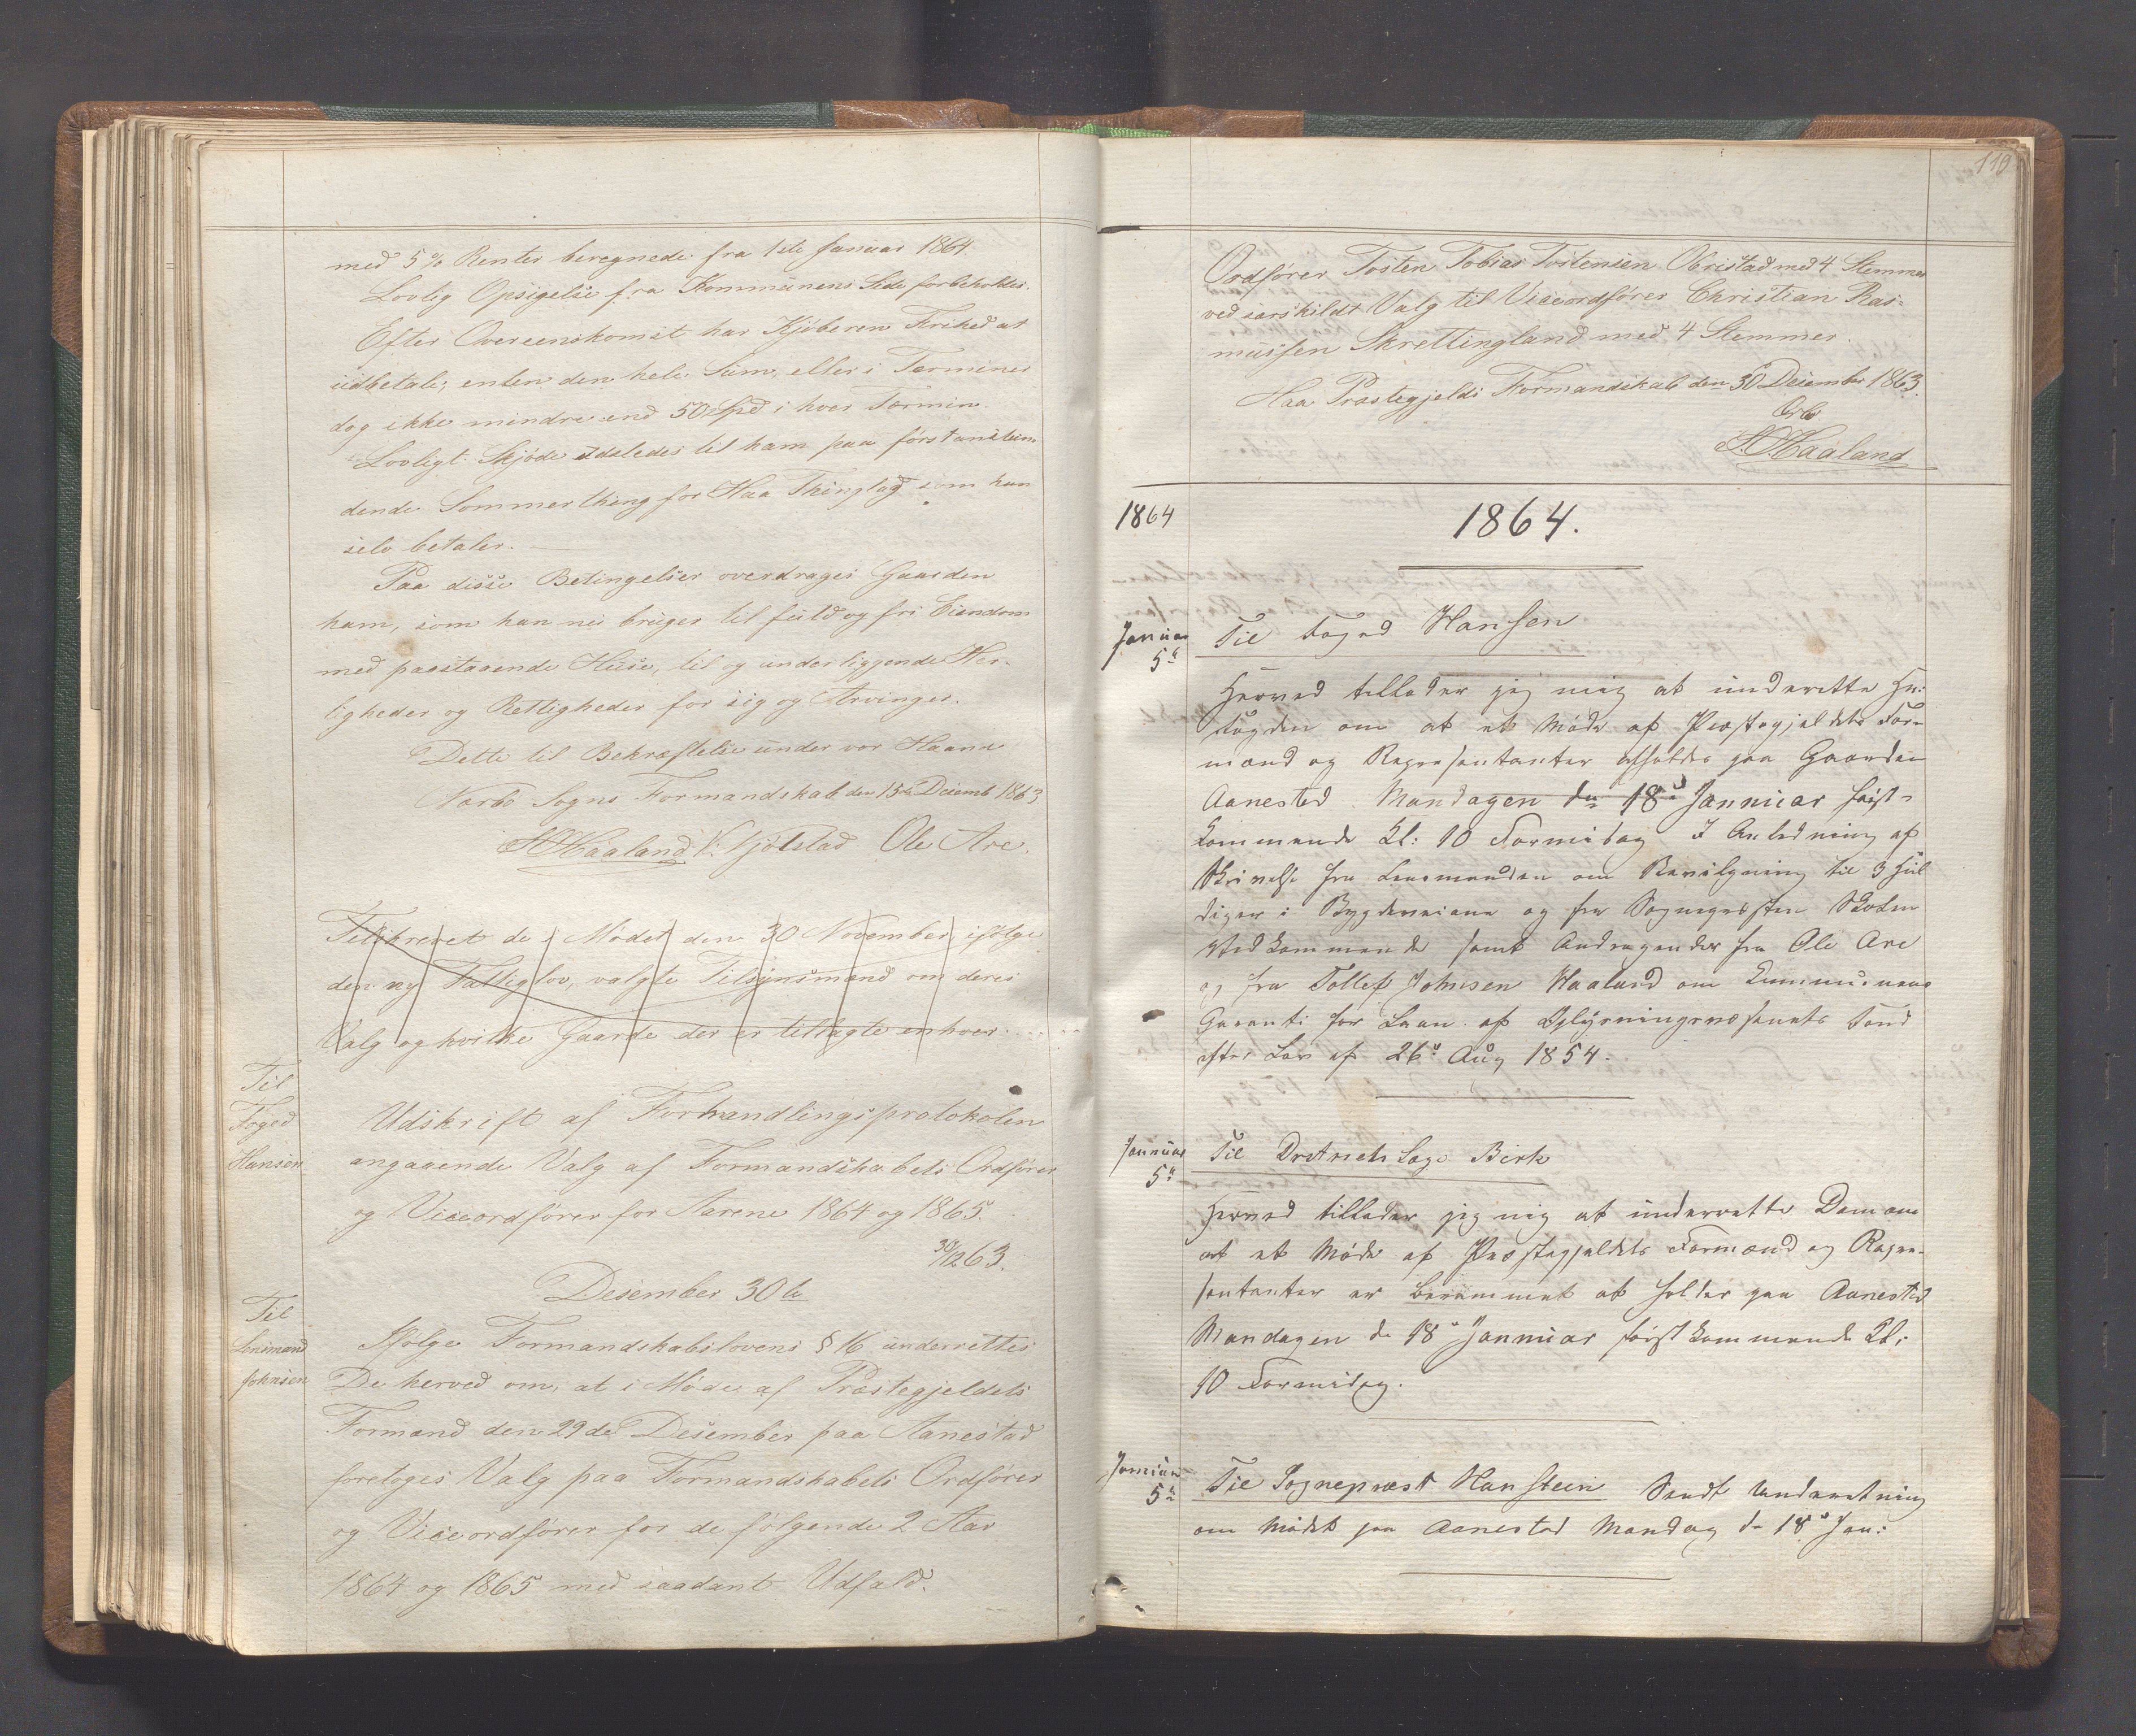 med 5% Renter beregnede fra 1ste Januar 1864.
Lovlig Opsigelse fra Kommunens Side forbeholdes.
Efter Overeenskomst har Kjöberen Frihed at
udbetale, enten den hele Sum, eller i Terminer
dog ikke mindre end 50 Spd i hver Termin.
Lovligt Skjöde udstedes til ham paa först anstun
dende Sommerthing for Haa Thinglag som han
selv betaler.
Paa disse Betingelser overdrages Gaarden
ham, som han nu bruger til fuld og fri Eiendom
med paastaaende Huse, til og underliggende Her-
ligheder og Rettigheder for sig og Arvinger.
Dette til Bekræftelse under vor Haand
Nærbö Sogns Formandskab den 15de Decemb 1863
S Haaland V. Njölstad Ole Are.
Tilskrevet de i Mödet den 30 November ifölge
den ny Fattiglov, valgte Tilsynsmænd om deres
Valg og hvilke Gaarde der er tillagte enhver.
Til
Foged
Hansen
Udskrift af Forhandlingsprotokolen
angaaende Valg af Formandskabets Ordförer
og Viceordförer for Aarene 1864 og 1865.
30/12 63.
Desember 30te
Til
Lensmand
Johnsen
Ifölge Formandskabslovens § 16 underrettes
De herved om, at i Möde af Præstegjeldets
Formænd den 29de Desember paa Aanestad
foretoges Valg paa Formandskabets Ordförer
og Viceordförer for de fölgende 2 Aar
1864 og 1865 med saadant Udfald.
119
Ordförer Tosten Tobias Tostensen Obristad med 4 Stemmer
ved særskildt Valg til Viceordförer Christian Ras-
mussen Skrettingland med 4 Stemmer.
Haa Præstegjelds Formandskab den 30 Desember 1863.
Erb
S Haaland
1864
1864.
Januar
5te
Til Foged Hansen
Herved tillader jeg mig at underrette Hr:
Fogden om at et Möde af Præstegjeldets For-
mænd og Representanter afholdes paa Gaarden
Aanestad Mandagen den 18de Januar först-
kommende Kl: 10 Formidag I Anledning af
Skrivelse fra Lensmanden om Bevilgning til 3 Hul
diger i Bygdeveiene og fra Sognepræsten Skolen
Vedkommende samt Andragender fra Ole Are
og fra Tollef Johnsen Haaland om Kummunens
Garanti for Laan af Oplysningsvæsenets Fond
efter Lov af 26de Aug 1854.
Januar
5te
Til Distriets Læge Birk
Herved tillader jeg mig at underrette Dem om
at et Möde af Præstegjeldets Formænd og Repre-
sentanter er berammet at holdes paa Aanestad
Mandagen de 18de Januar först kommende Kl:
10 Formidag.
Januar
5te
Til Sognepræst Hanstein Sendt Underretning
om Mödet paa Aanestad Mandag de 18de Jan: